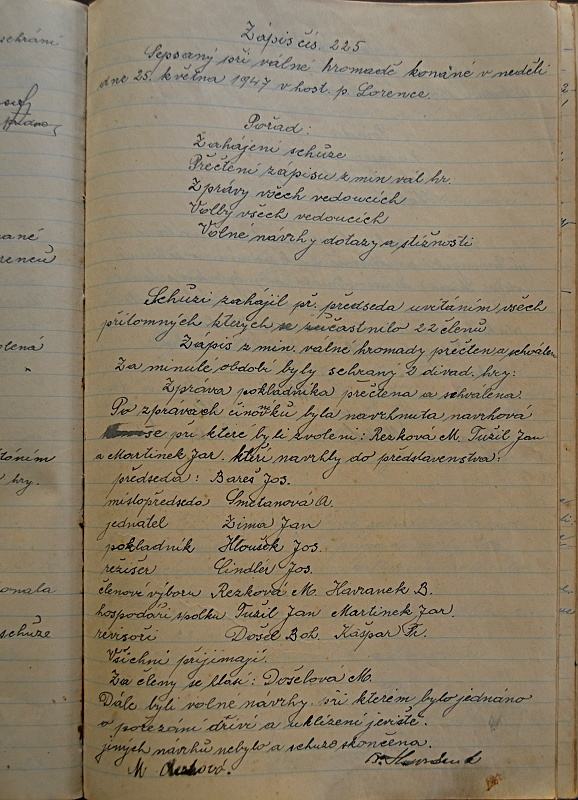 schrání
Zápis čís. 225
Sepsaný při válné hromadě konáné v neděli
dne 25. května 1947 v host. p. Lorence.
Pořad:
Zahájení schůze
Přečtení zápisu z min vál hr.
Zprávy všech vedoucích
Volby všech vedoucích
Volné návrhy dotazy a stížnosti
Schůzi zahájil př. předseda uvítáním všech
přítomných kterých se zúčastnilo 22 členů
Zápis z min. válné hromady přečten a schválen
Za minulé období byly sehrany 3 divad. hry:
Zpráva pokladníka přečtena a schválena.
Po zprávách činovníků byla navrhnuta navrhová
při které byli zvoleni: Rezkova M. Tužil Jan
a Martinek Jar. kteří navrhly do představenstva:
předseda: Bareš Jos.
místopředseda Smetanová A.
jednatel Zima Jan
pokladník Hloušek Jos.
režisér Cindler Jos.
členové výboru Rezková M. Havranek B.
hospodáři spolku Tužil Jan Martinek Jar.
revisoři Dosěl Boh. Kašpar Fr.
Všichni přijimají.
Za členy se hlasí: Došelová M.
Dále byli volne návrhy při kterém bylo jednáno
o pořezání dříví a uklízení jeviště.
jiných návrhů nebylo a schuze skončena.
M